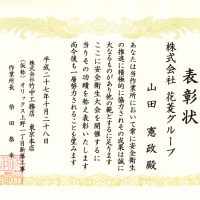 表彰状
株式会社 花菱グループ
山田 憲政殿
あなたは当作業所において常に安全衛生
の推進に積極的に協力されその成果は誠に
大なるものがあり他の範とするに足ります
ここに安全衛生大会を開催するに
当りその功績を称え表彰いたします
尚今後も一層努力されることを望みます
平成二十七年十月二十八日
株式会社竹中工務店 東京本店
(仮称)オリックス上野一丁目新築工事
作業所長 柴田